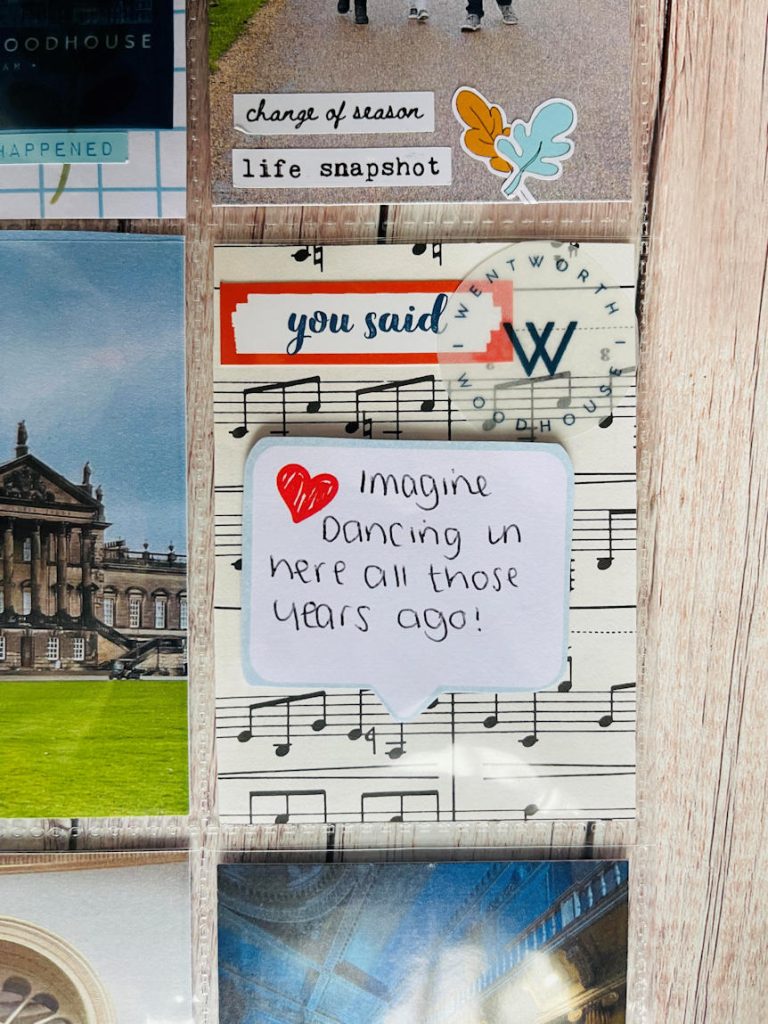 OODHOUSE
HAPPENED
change of season
life snapshot
you said
WENTWORTH
WOODHOUSE
W
Imagine
Dancing in
here all those
years ago!
4